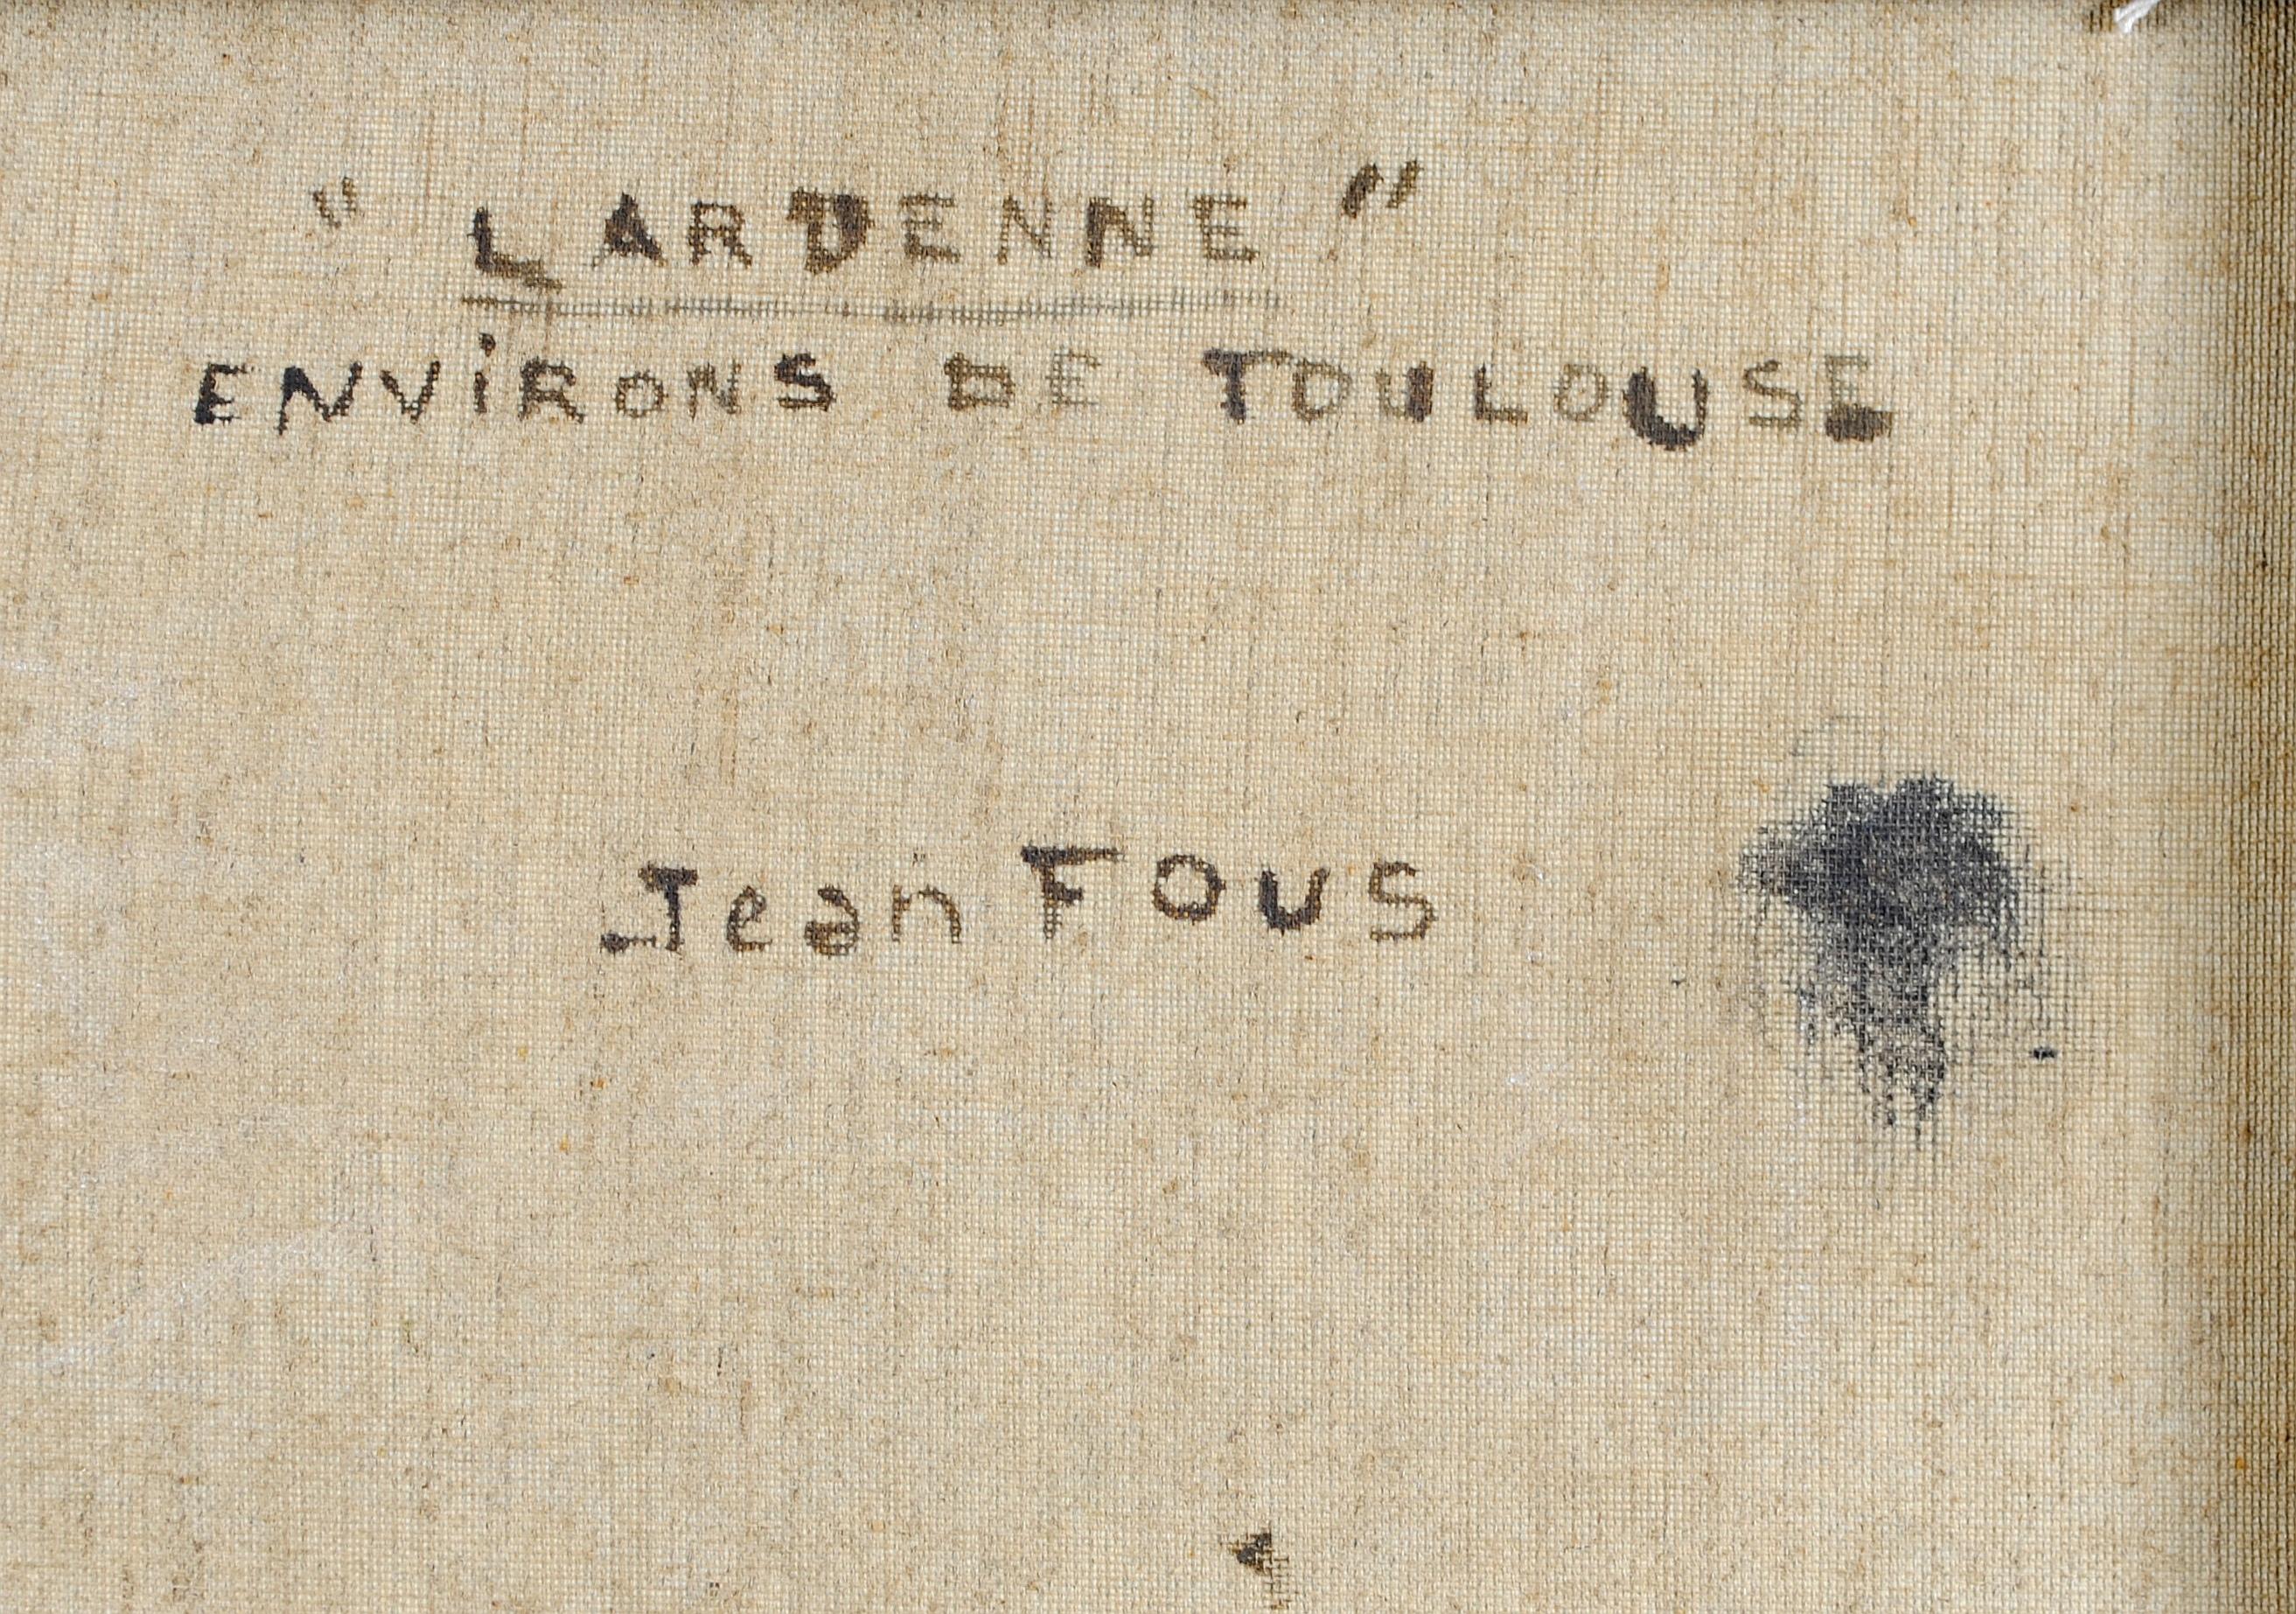 " LARDENNE "
ENViRONS DE TOULOUSE
Jean FOUS